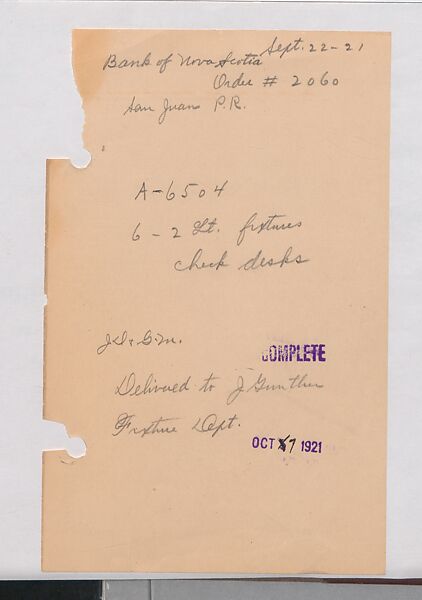 Sept. 22-21
Bank of Nova Scotia
Order # 2060
San Juan P.R.
A-6504
6 - 2 Lt. fixtures
check desks
COMPLETE
Delivered to J Gunther
Fixture Dept.
OCT 7 1921